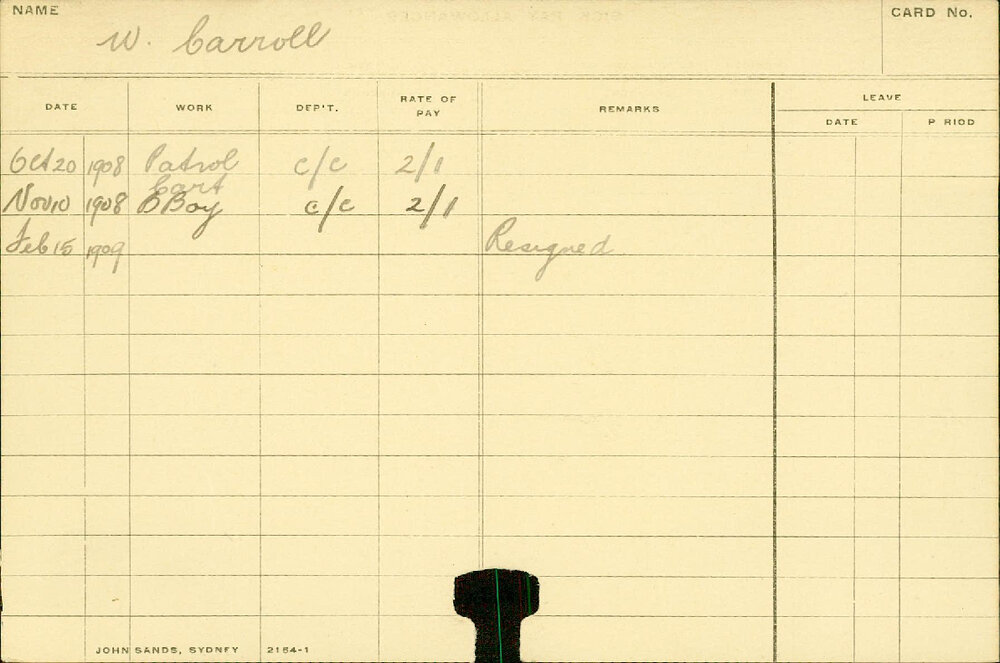 NAME
W. Carroll
CARD No.
DATE WORK DEP'T. RATE OF PAY REMARKS LEAVE
DATE P RIOD
Oct 20 1908 Patrol c/c 2/1
Cart
Nov 10 1908 Boy c/c 2/1
Feb 15 1909 Resigned
JOHN SANDS, SYDNEY 2154-1